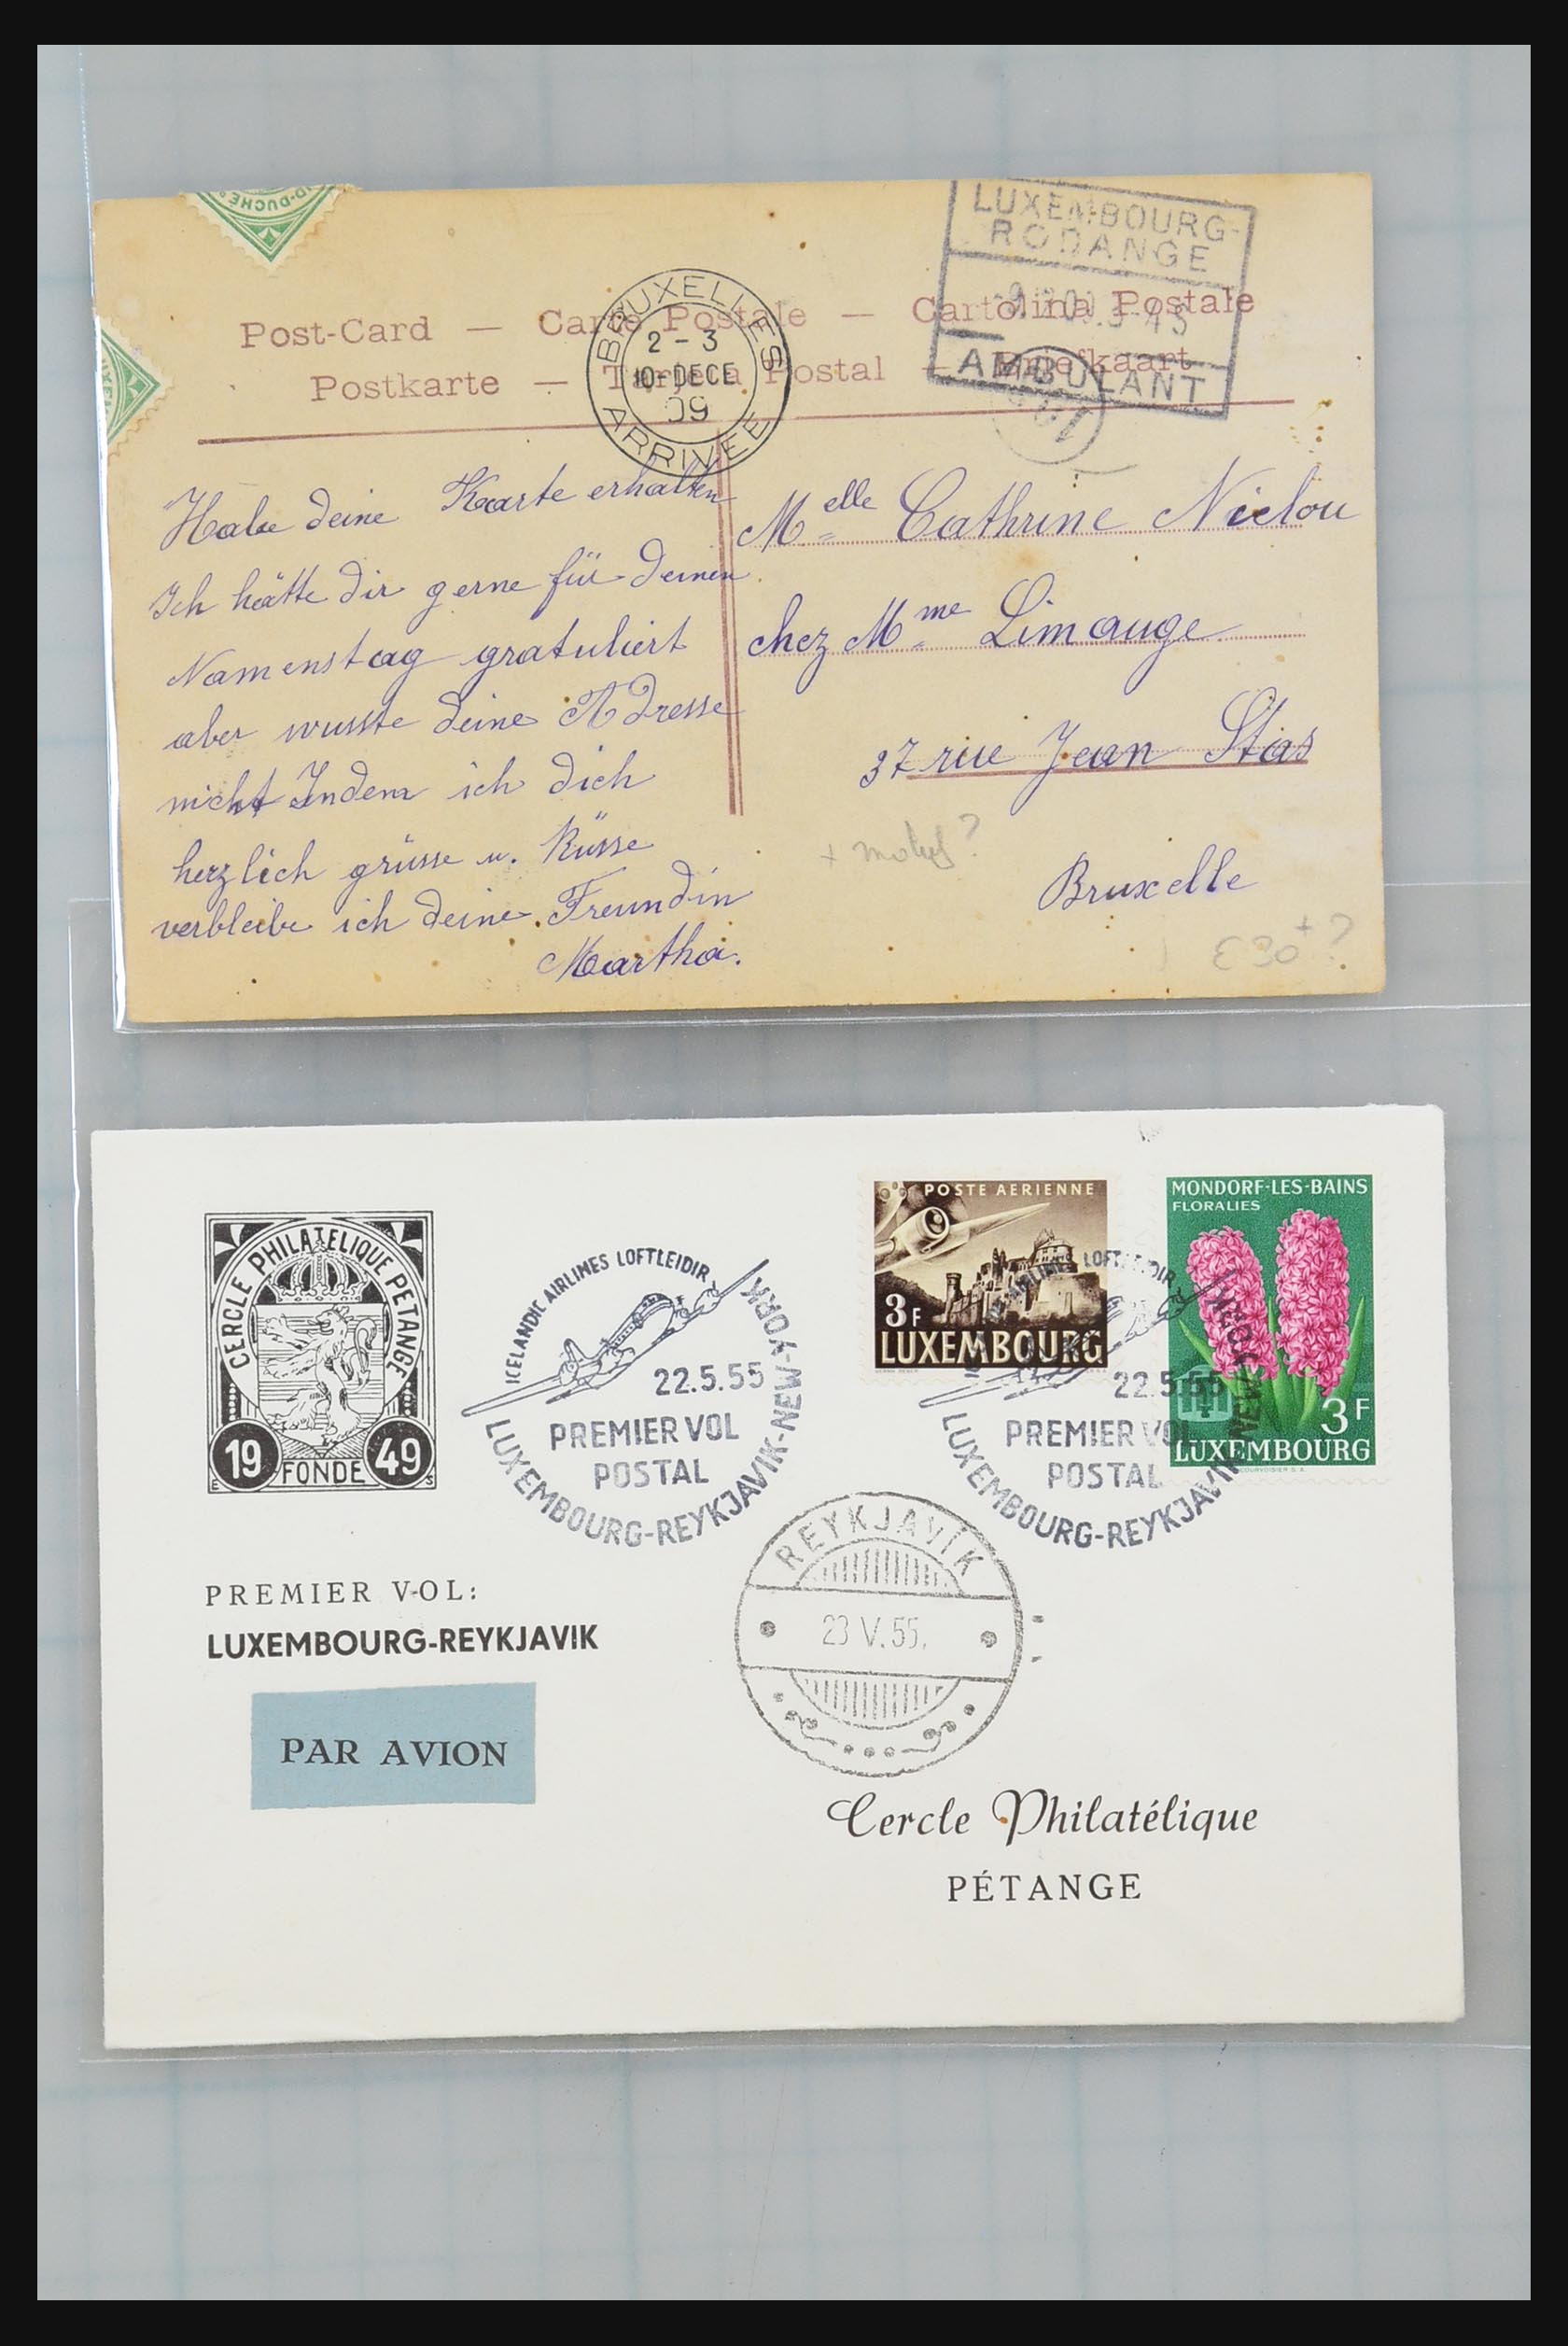 D-DUCHÉ
LUXEMBOURG-
RODANGE
AMBULANT
Post-Card — Carte Postale — Cartolina Postale
Postkarte — Tarjeta Postal — Briefkaart
BRUXELLES
2-3
10-DECE
09
ARRIVEE
Habe deine Kaarte erhalten
Ich hätte dir gerne für deinen
Namenstag gratuliert
aber wusste deine Adresse
nicht Indem ich dich
herzlich grüsse u. Küsse
verbleibe ich deine Freundin
Martha.
Melle Cathrine Niclou
chez Mme Limauge
37 rue Jean Stas
Bruxelle
€30+?
CERCLE PHILATELIQUE PETANGE
19 FONDE 49
ICELANDIC AIRLINES LOFTLEIDIR
22.5.55
PREMIER VOL
POSTAL
LUXEMBOURG-REYKJAVIK-NEW-YORK
POSTE AERIENNE
3F
LUXEMBOURG
MONDORF-LES-BAINS
FLORALIES
3F
LUXEMBOURG
AIRLINES LOFTLEIDIR
22.5.55
PREMIER VOL
POSTAL
LUXEMBOURG-REYKJAVIK-NEW-YORK
REYKJAVÍK
23 V.55.
PREMIER VOL:
LUXEMBOURG-REYKJAVIK
PAR AVION
Cercle Philatélique
PÉTANGE